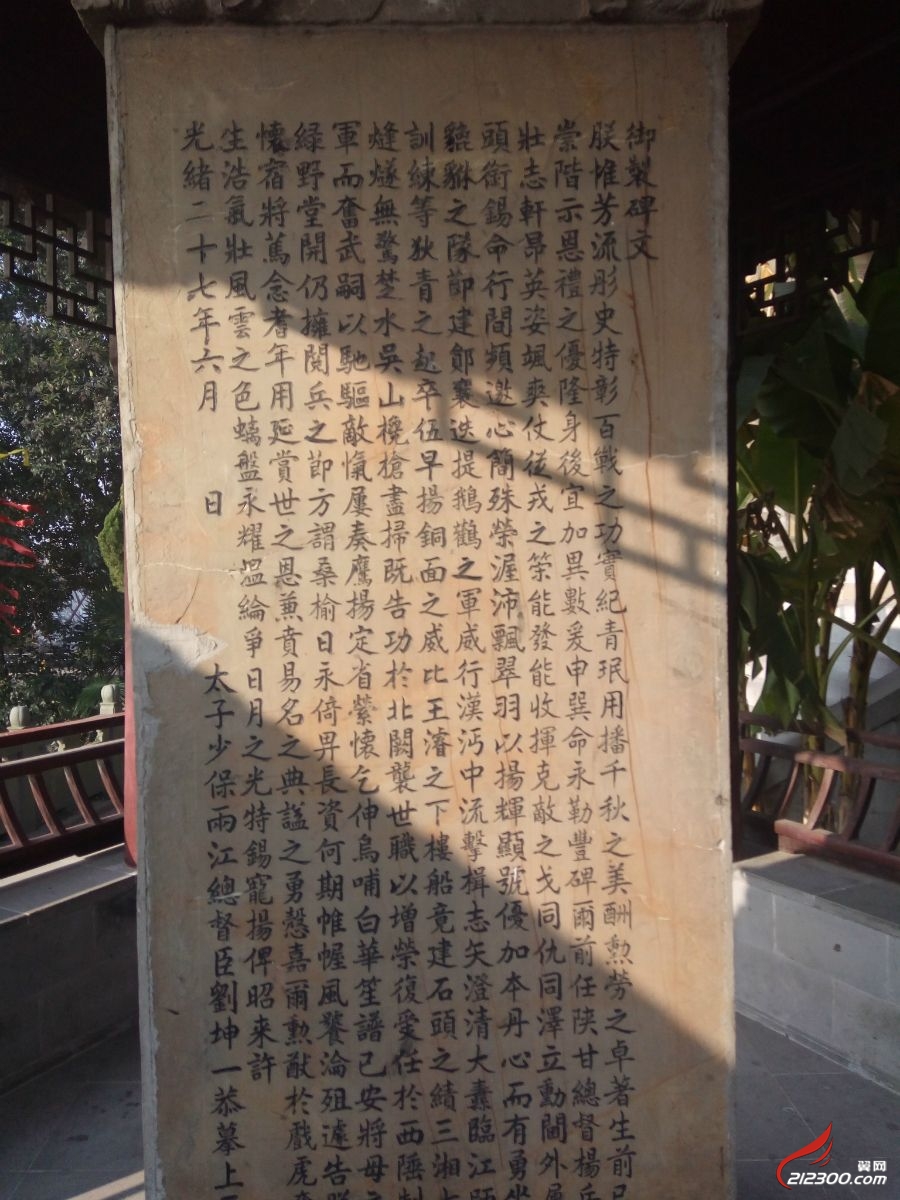 御製碑文
朕惟芳流彤史特彰百戰之功實紀青珉用播千秋之美酬勲勞之卓著生前已
崇階示恩禮之優隆身後宜加異數爰申巽命永勒豐碑爾前任陜甘總督楊岳
壯志軒昂英姿颯爽仗從戎之策能發能收揮克敵之戈同仇同澤立勳閫外屢
頭銜錫命行間頻邀心簡殊榮渥沛飄翠羽以揚輝顯號優加本丹心而有勇坐
貔貅之隊節建鄖襄迭提鵝鸛之軍威行漢沔中流擊楫志矢澄清大纛臨江師
訓練等狄青之起卒伍早揚銅面之威比王濬之下樓船竟建石頭之績三湘
烽燧無驚楚水吳山欃槍盡掃既告功於北闕襲世職以增榮復愛任於西陲制
軍而奮武嗣以馳驅敵愾屢奏鷹揚定省縈懷乞伸烏哺白華笙譜已安將母之
綠野堂開仍擁閱兵之節方謂桑榆日永倚畀長資何期帷幄風饕淪殂遽告
懷宿將篤念耆年用延賞世之恩兼賁易名之典諡之勇愨嘉爾勲猷於戲虎
生浩氣壯風雲之色螭盤永耀溫綸爭日月之光特錫寵揚俾昭來許
光緒二十七年六月 日 太子少保兩江總督臣劉坤一恭摹上
翼网
212300.com